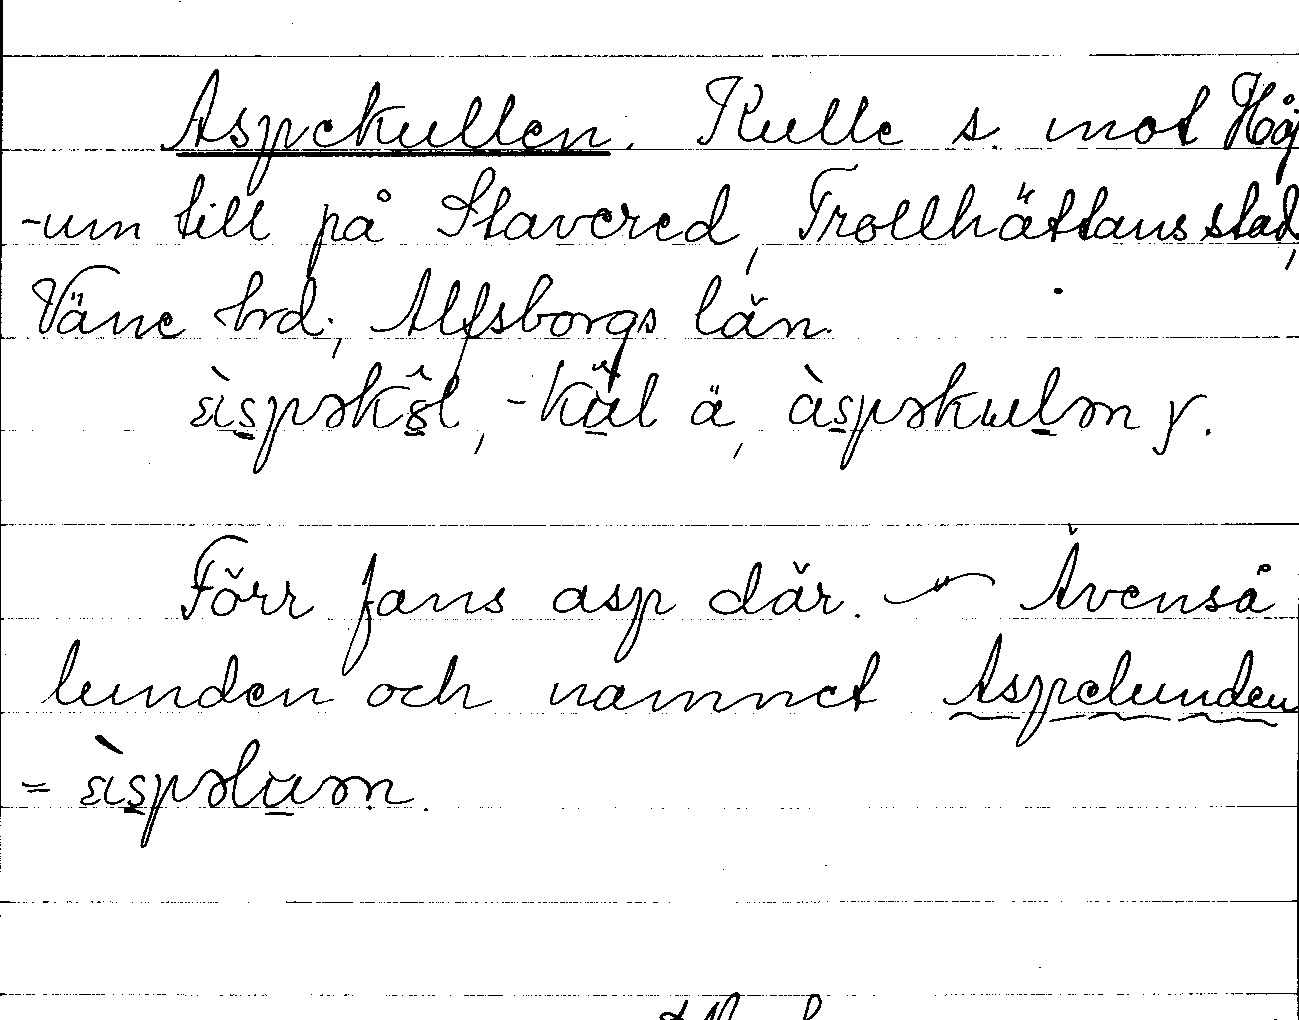 Aspekullen. Kulle s. mot Håj
-um till på Stavered, Trollhättans stad,
Väne hrd., Alfsborgs län.
àspəkôl, -kŭl ä, àspəkulən y.
Förr fans asp där. — Avenså
lunden och namnet Aspelunden
= àspəluən.